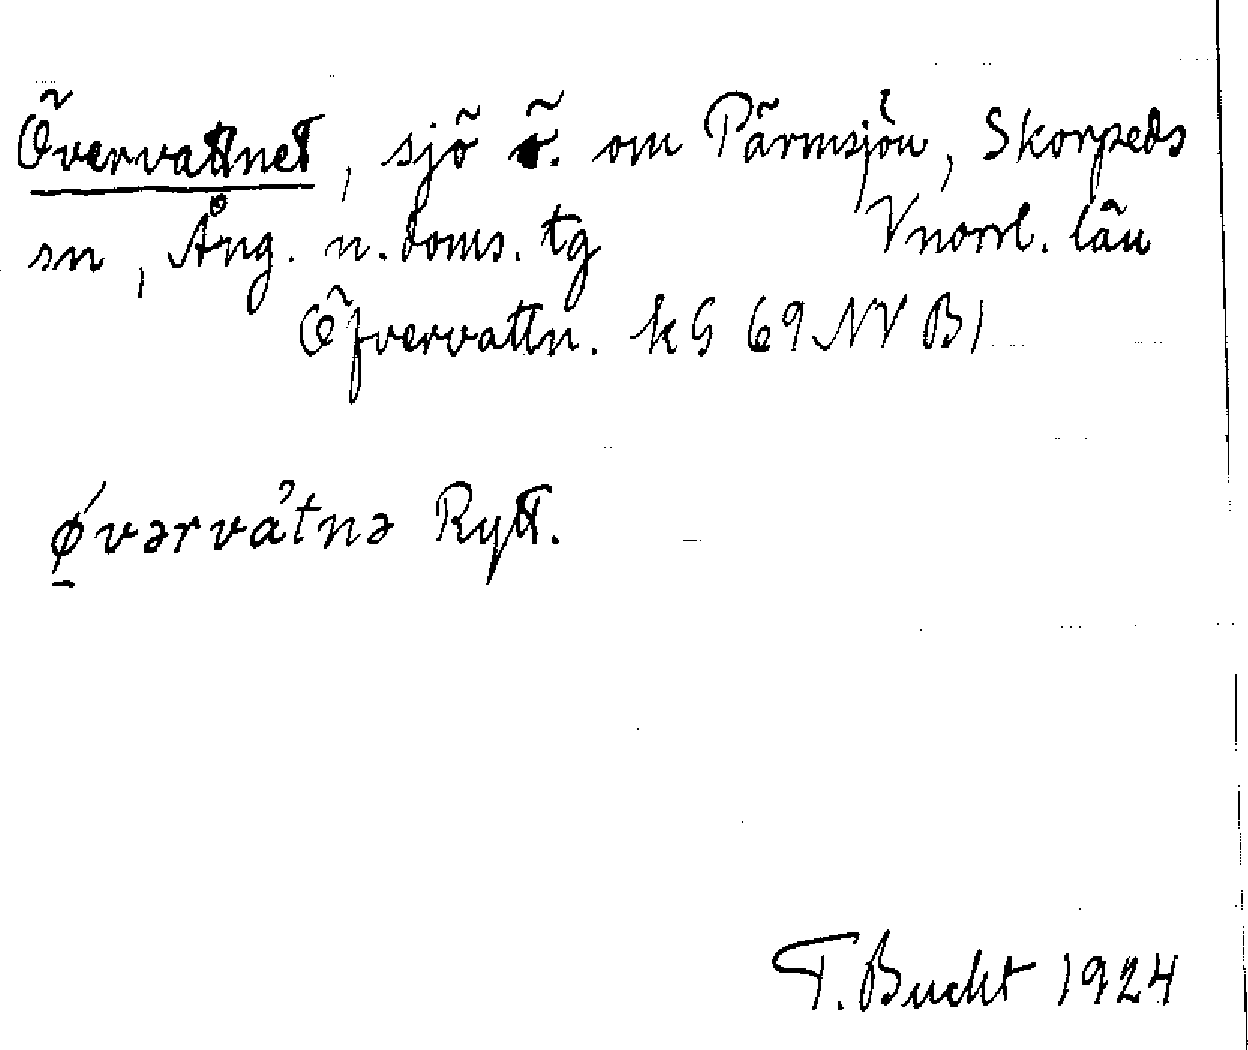 Övervattnet, sjö ö. om Pärmsjön, Skorpeds
sn, Ång. n. doms. tg Vnorrl. län
Öfvervattn. kG 69 NV B1
ǿ̱vərvàtnə Rytt.
T. Bucht 1924